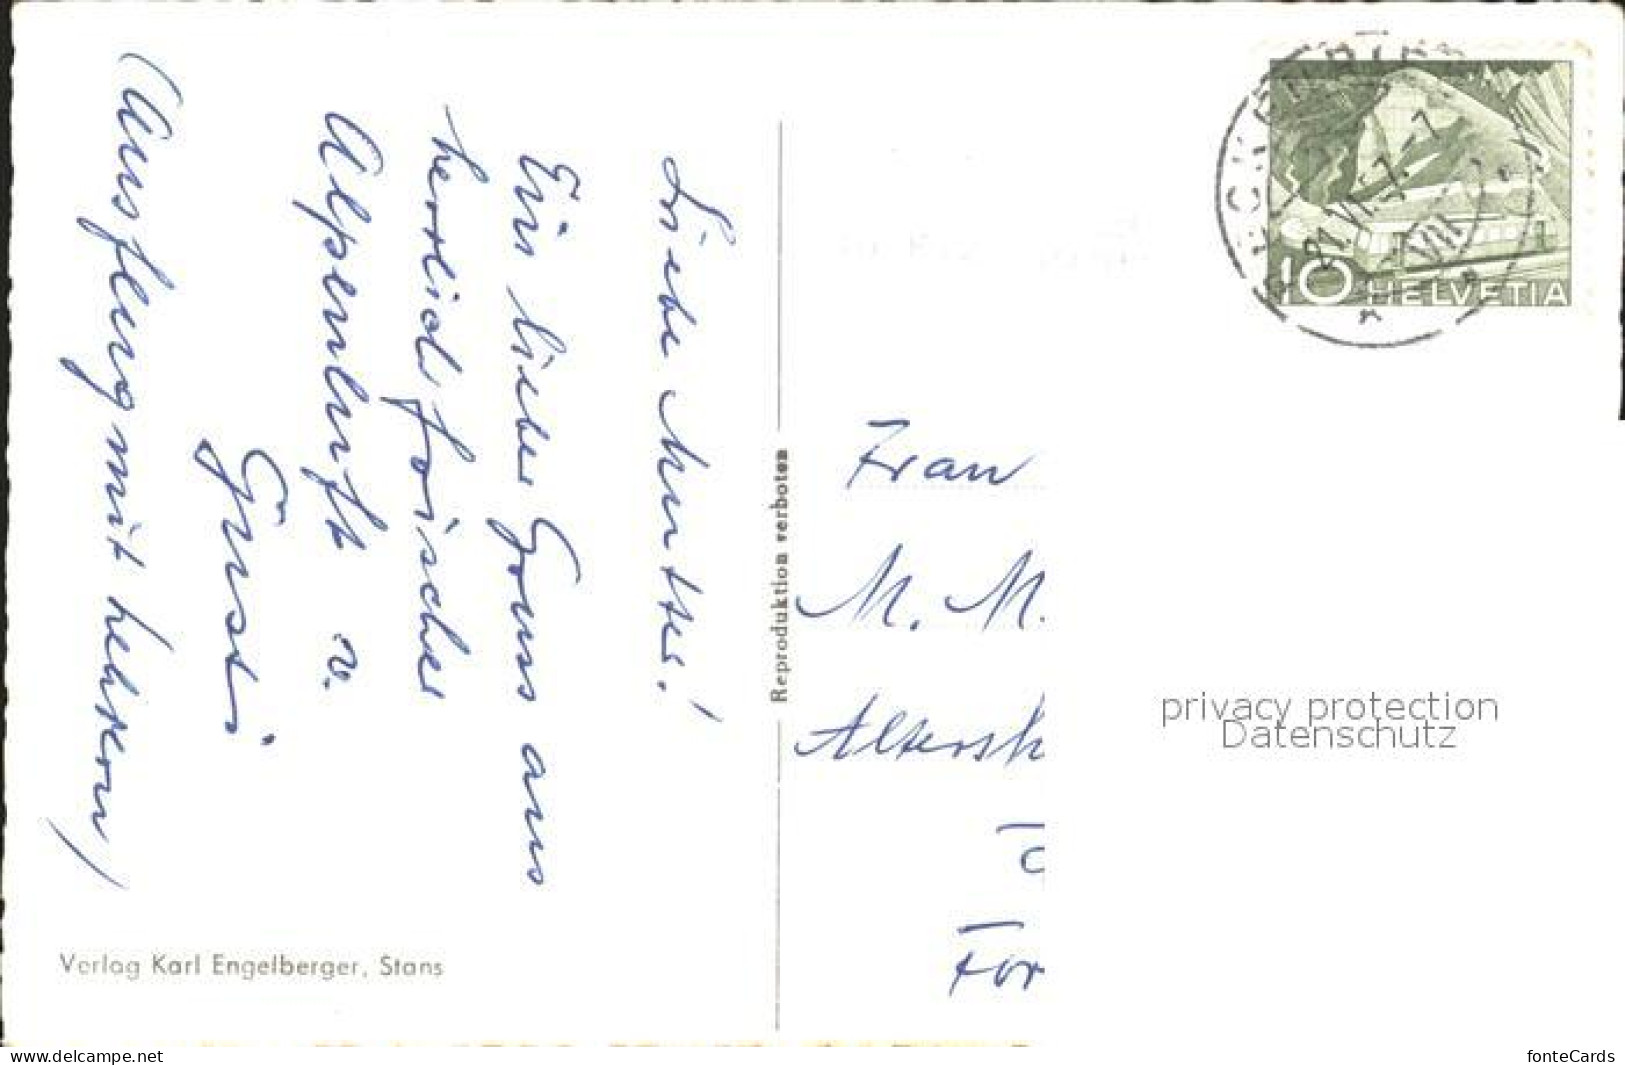 Liebe Mutter!
Ein lieber Gruss aus
herrlich frischer
Alpenluft v.
Gusti
(Ausflug mit Lehrern)
Verlag Karl Engelberger, Stans
Reproduktion verboten
10 HELVETIA
VII
Frau
M. M.
Altersh
For
privacy protection
Datenschutz
www.delcampe.net
fonteCards